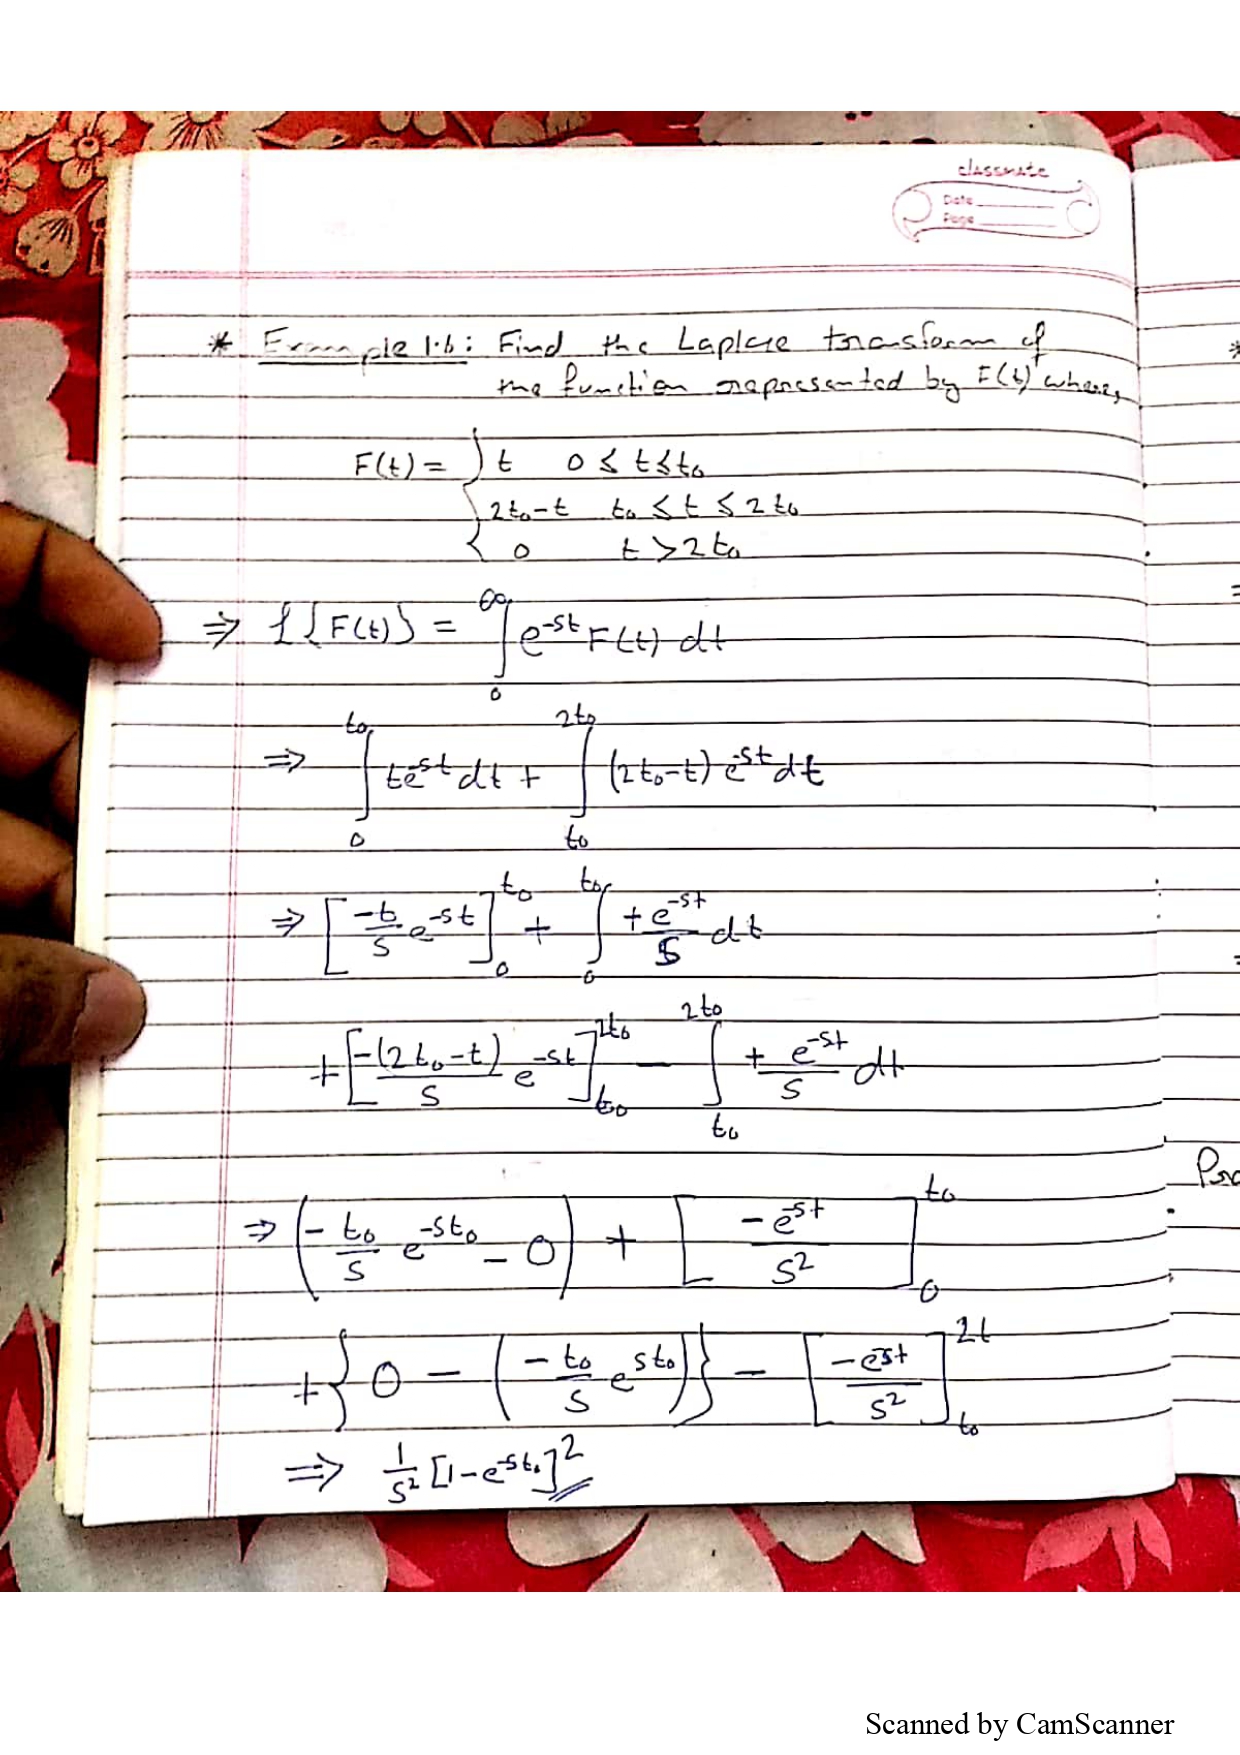 classmate
Date
Page
* Example 1.6: Find the Laplace transform of
the function represented by F(t) where,
F(t) = { t 0 ≤ t ≤ t₀
2t₀-t t₀ ≤ t ≤ 2t₀
0 t > 2t₀
⇒ L{F(t)} = ∫₀^∞ e^{-st} F(t) dt
⇒ ∫₀^{t₀} te^{-st} dt + ∫_{t₀}^{2t₀} (2t₀-t) e^{-st} dt
⇒ [-t/s e^{-st}]₀^{t₀} + ∫₀^{t₀} + e^{-st}/s dt
+ [-(2t₀-t)/s e^{-st}]_{t₀}^{2t₀} - ∫_{t₀}^{2t₀} + e^{-st}/s dt
⇒ (-t₀/s e^{-st₀} - 0) + [-e^{-st}/s²]₀^{t₀}
+ {0 - (-t₀/s e^{st₀})} - [-e^{-st}/s²]_{t₀}^{2t}
⇒ 1/s² [1-e^{-st₀}]²
Scanned by CamScanner